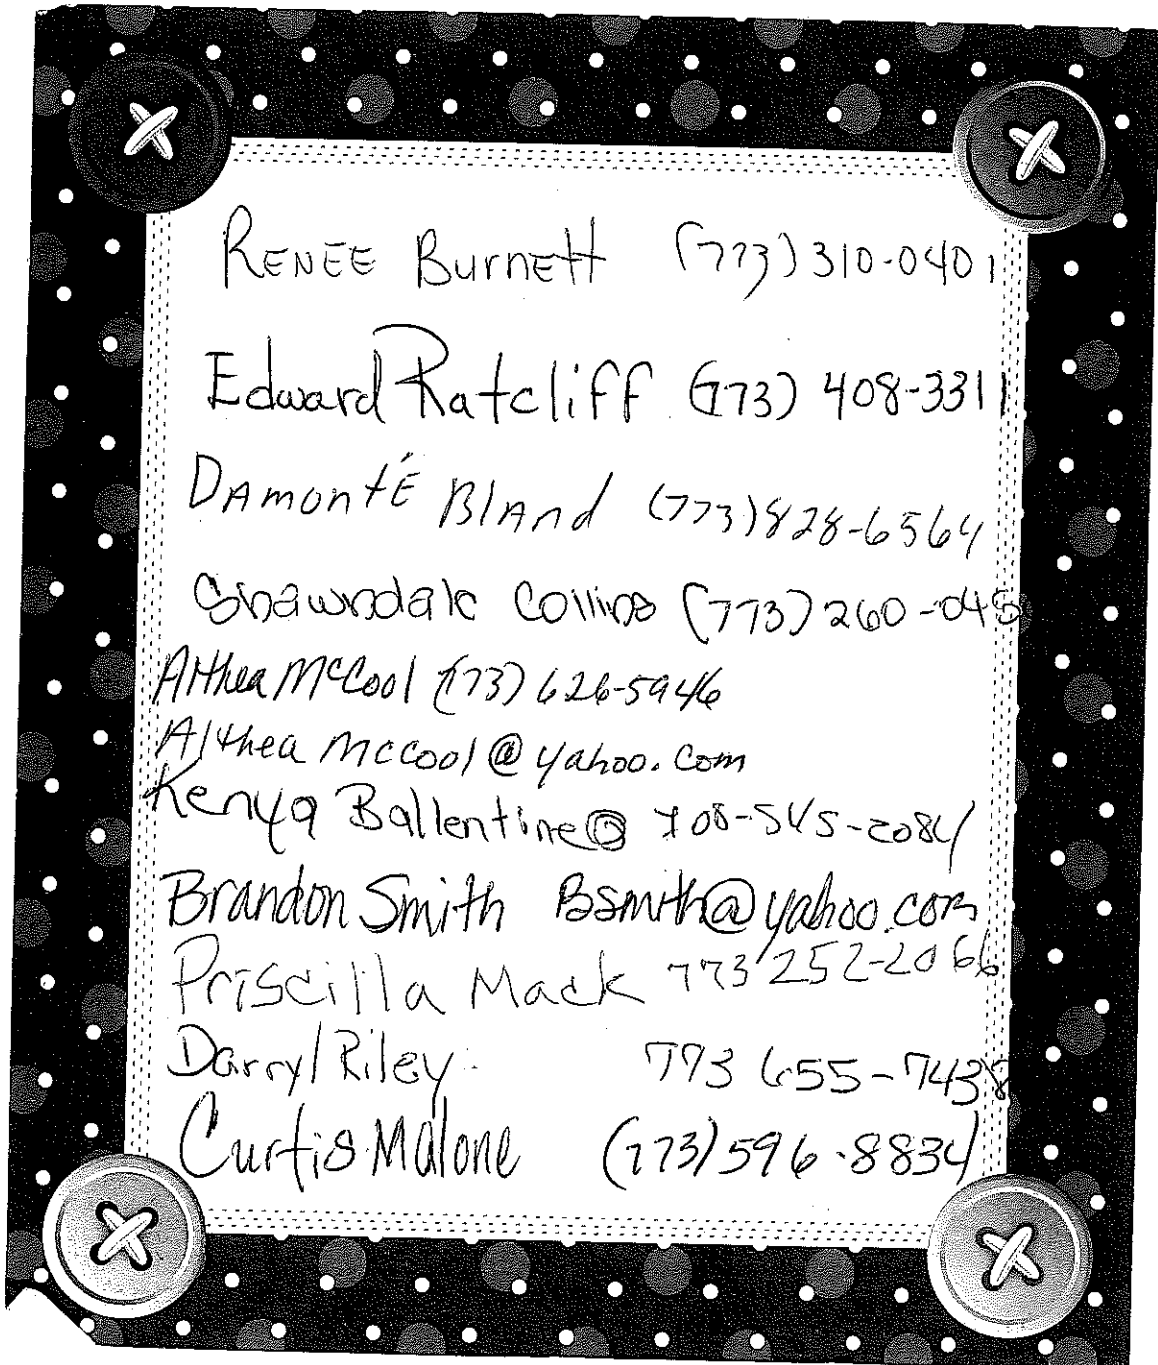 RENEE Burnett (773) 310-0401
Edward Ratcliff (773) 408-3311
DAmontÉ BlAnd (773) 828-6564
Shawndale Collins (773) 260-045
Althea McCool (773) 626-5946
Althea Mccool@yahoo.com
Kenya Ballentine@ 708-545-2084
Brandon Smith Bsmith@yahoo.com
Priscilla Mack 773 252-2066
Darryl Riley 773 655-7438
Curtis Malone (773) 596-8834